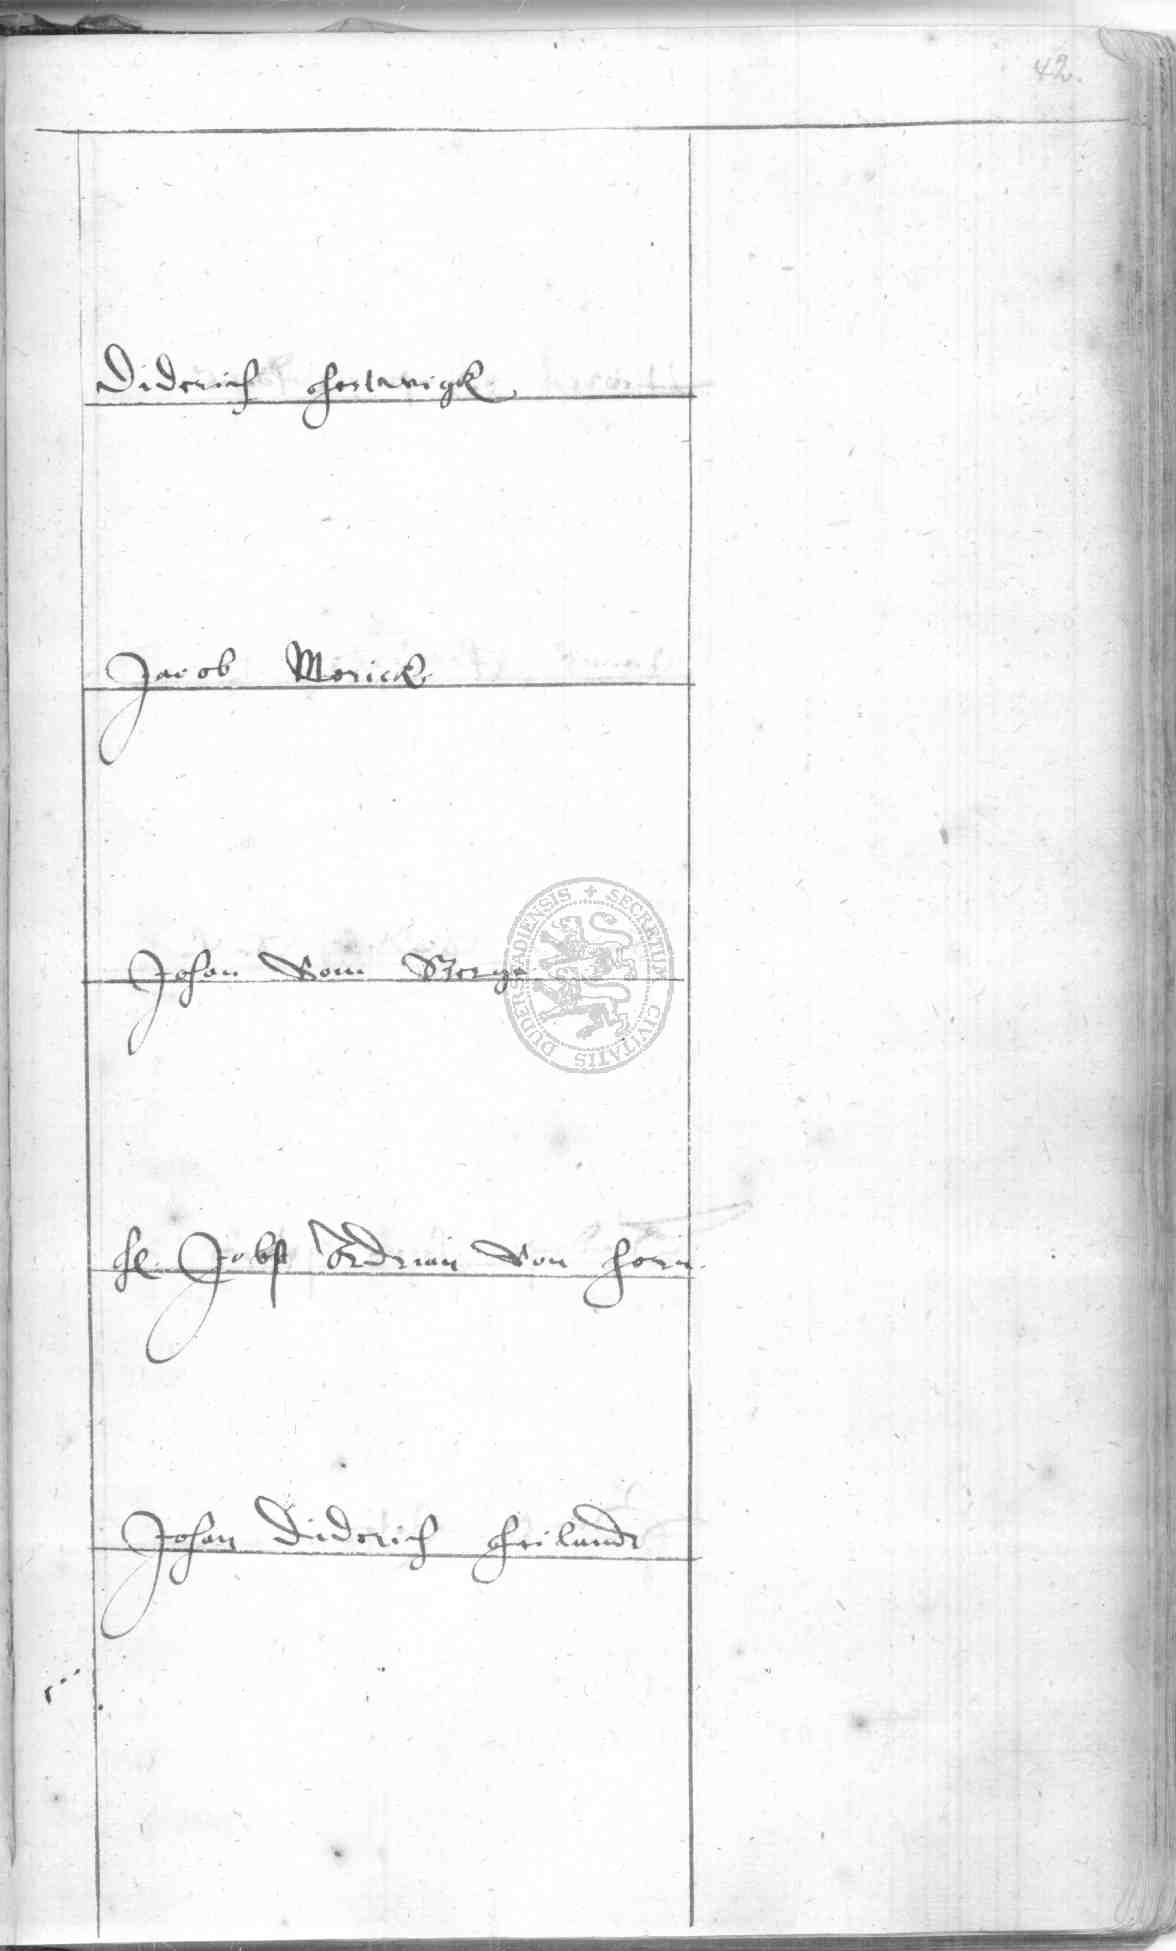 42.
Diderich Hertwigk
Jacob Morick
Johan Vom Berge
SECRETUM CIVITATIS DUDERSTADIENSIS
H. Jobst Adrian Von Horn
Johan Diderich Heilandt